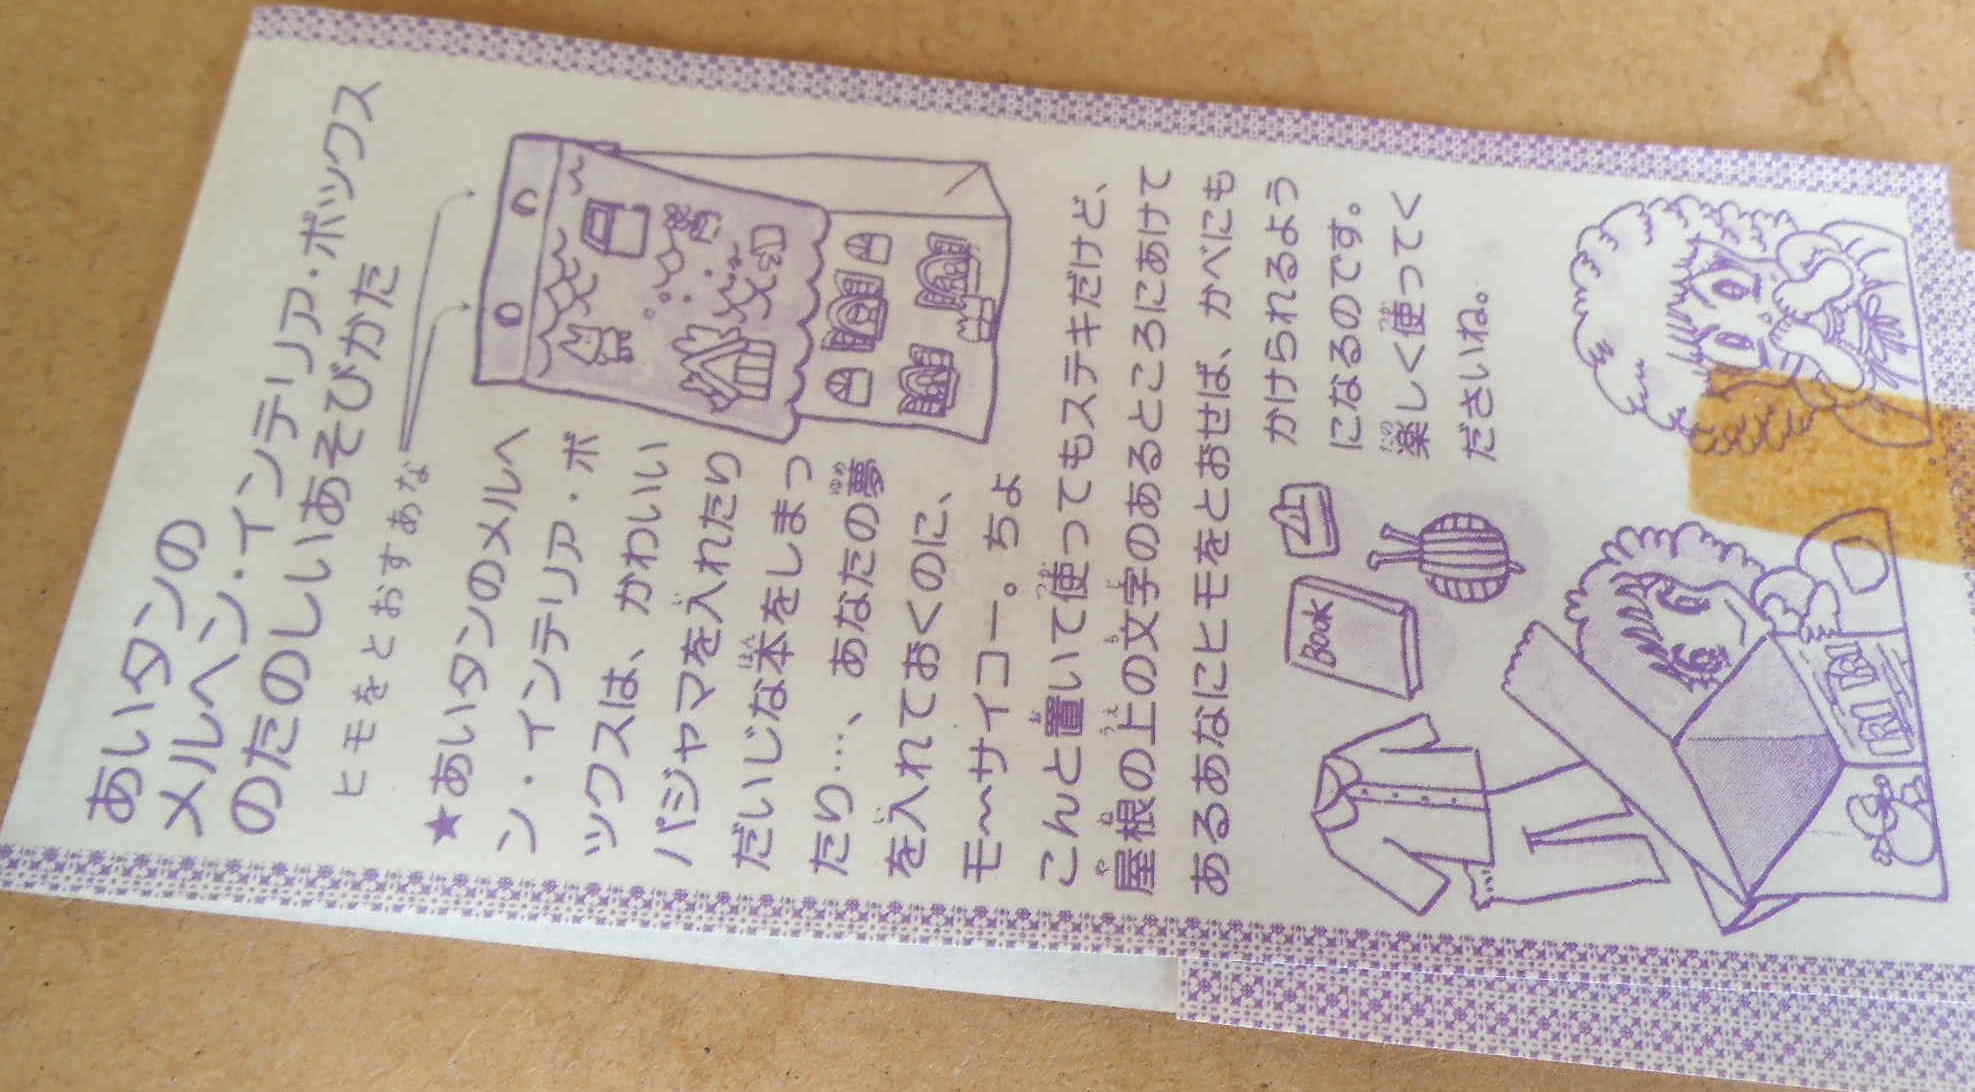 あいタンの
メルヘン・インテリア・ボックス
のたのしいあそびかた
ヒモをとおすあな
★あいタンのメルヘ
ン・インテリア・ボ
ックスは、かわいい
パジャマを入れたり
だいじな本をしまっ
たり…、あなたの夢
を入れておくのに、
モ〜サイコー。ちょ
こんと置いて使ってもステキだけど、
屋根の上の文字のあるところにあけて
あるあなにヒモをとおせば、かべにも
かけられるよう
になるのです。
楽しく使ってく
ださいね。
BOOK